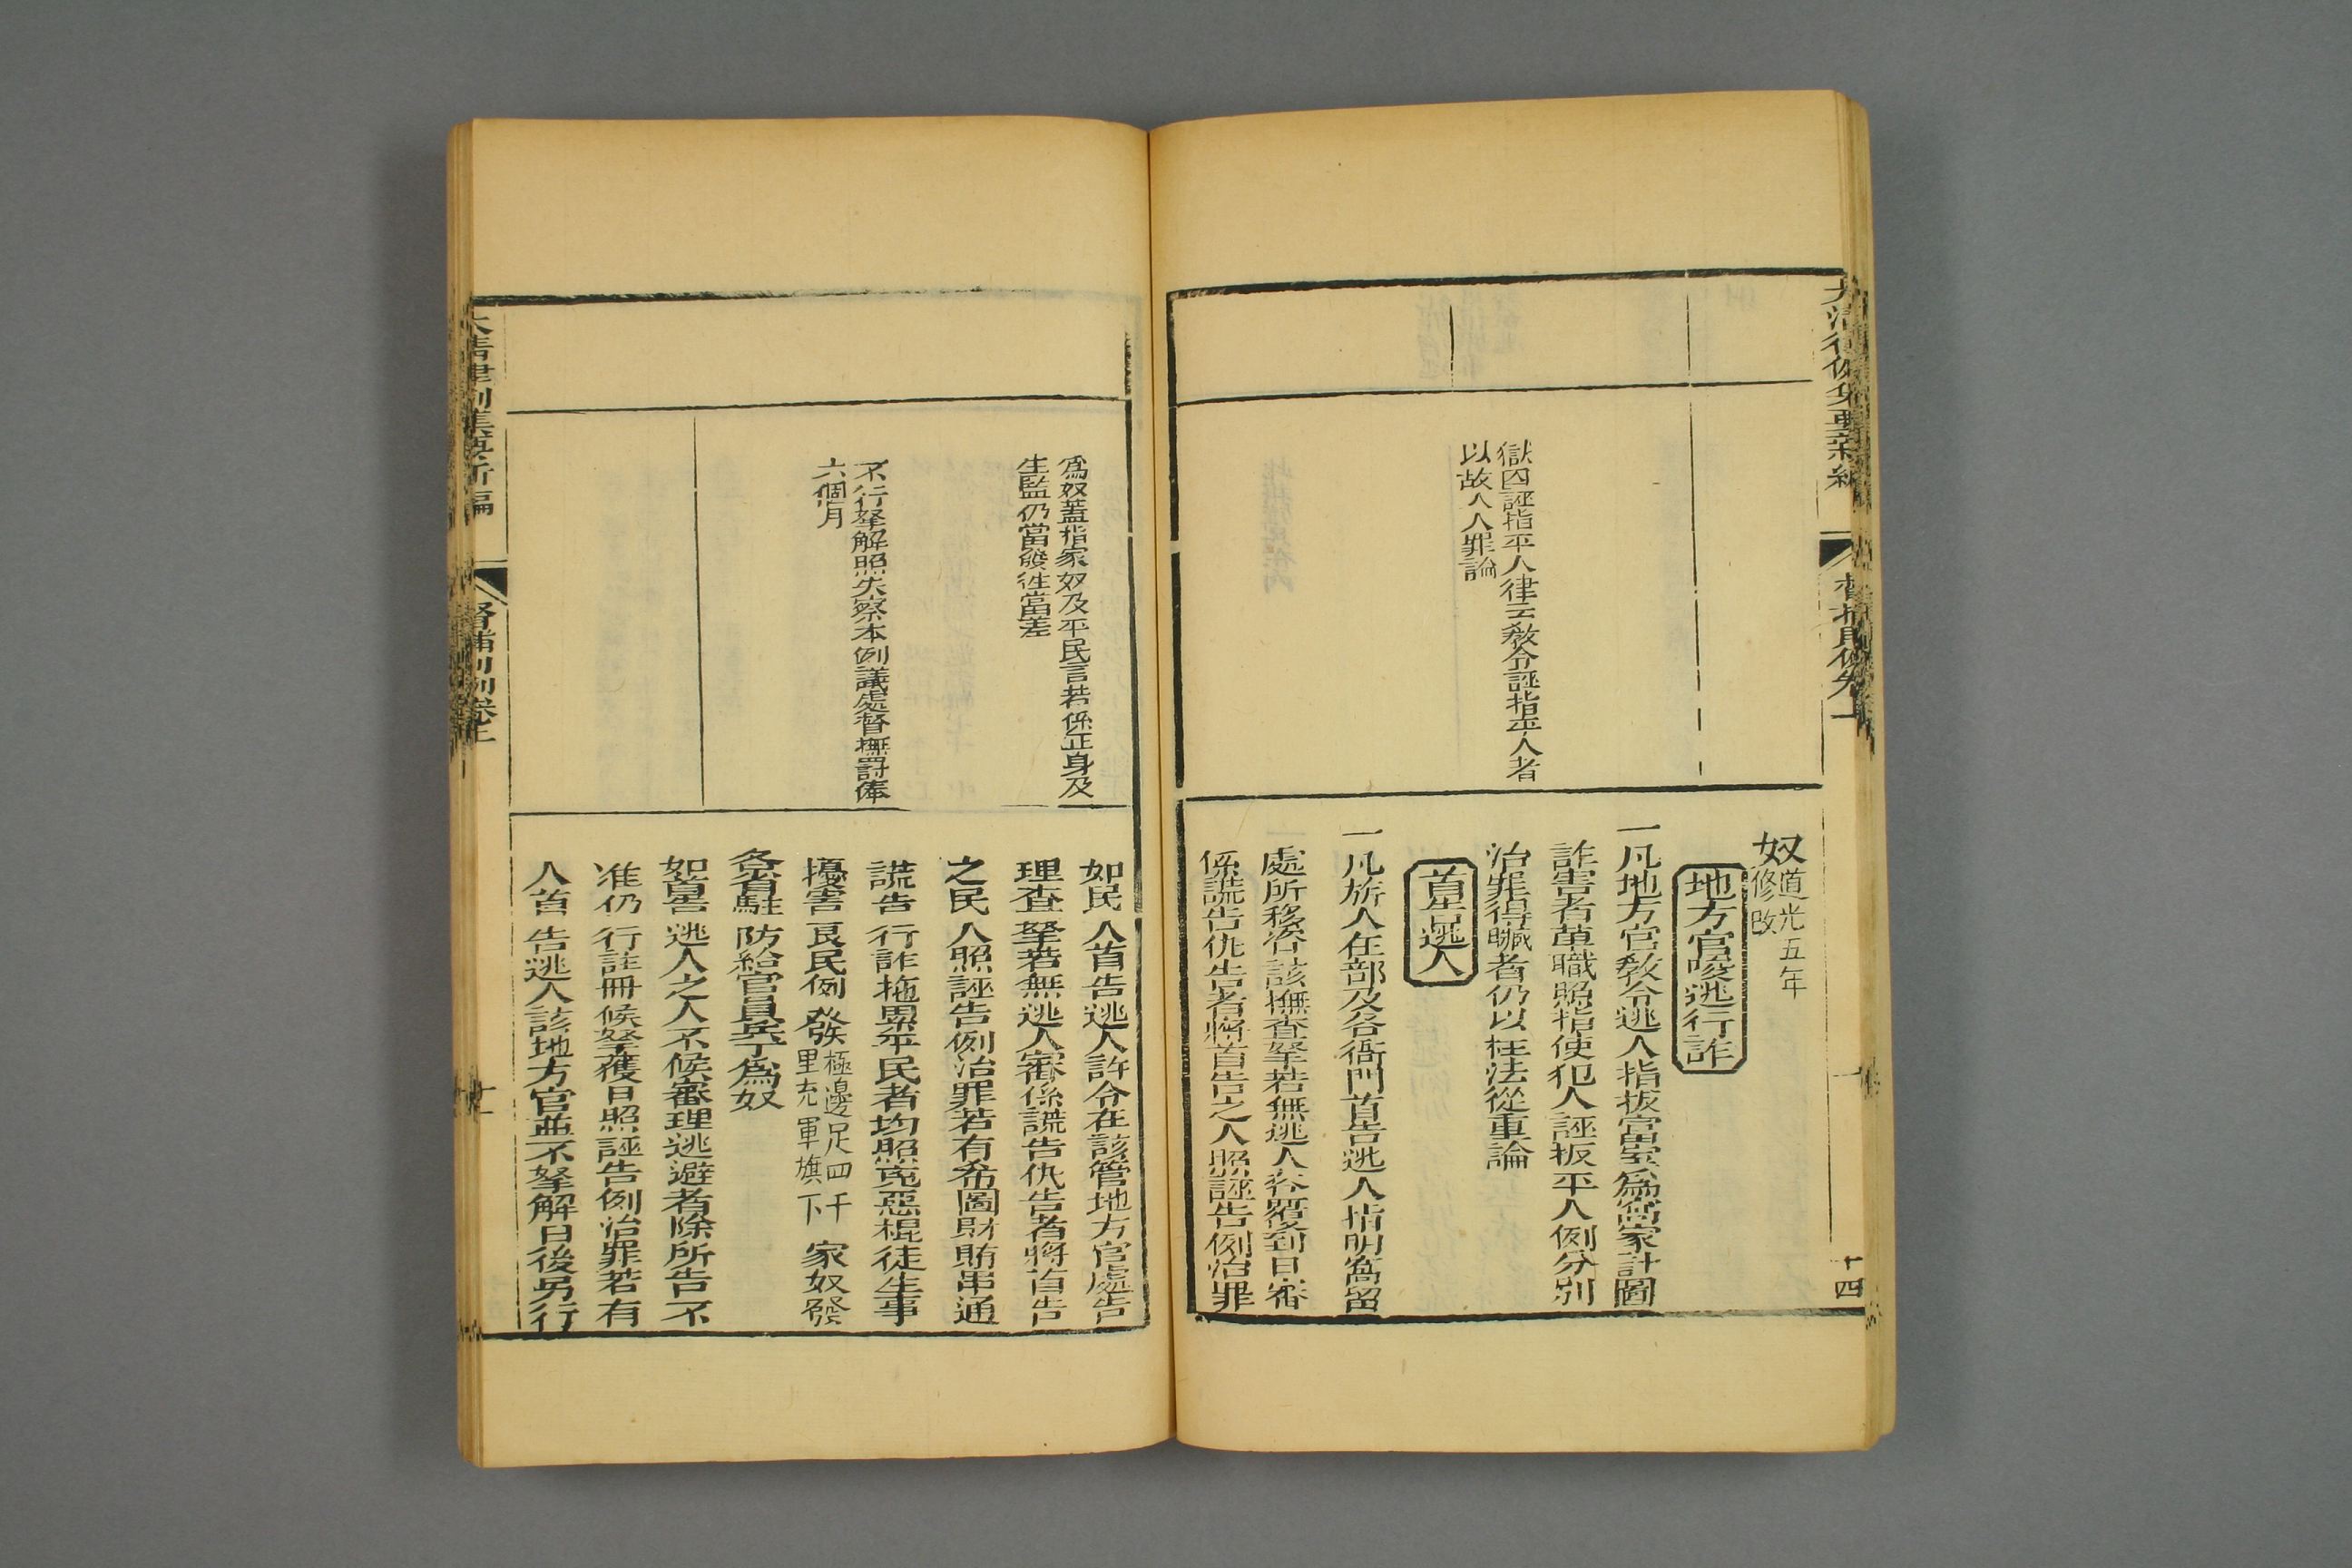 獄囚誣指平人律云敎令誣指平人者
以故入人罪論
奴道光五年
修改
地方官唆逃行詐
一凡地方官敎令逃人指扳富室爲窩家計圖
詐害者革職照指使犯人誣扳平人例分別
治罪得贓者仍以枉法從重論
首告逃人
一凡旂人在部及各衙門首告逃人情明窩留
處所移咨該撫查拏若無逃人咨覆到日審
係謊告仇告者將首告之人照誣告例治罪
十四
爲奴蓋指家奴及平民言若係正身及
生監仍當發往當差
不行拏解照失察本例議處督撫罰俸
六個月
如民人首告逃人許令在該管地方官處告
理查拏若無逃人審係謊告仇告者將首告
之民人照誣告例治罪若有希圖財賄串通
謊告行詐拖累平民者均照兇惡棍徒生事
擾害良民例發極邊足四千
里充軍旗下家奴發
各省駐防給官員兵丁爲奴
如首告逃人之人不候審理逃避者除所告不
准仍行註冊候拏獲日照誣告例治罪若有
人首告逃人該地方官並不拏解日後另行
大清律例集要新編
督捕則例卷上